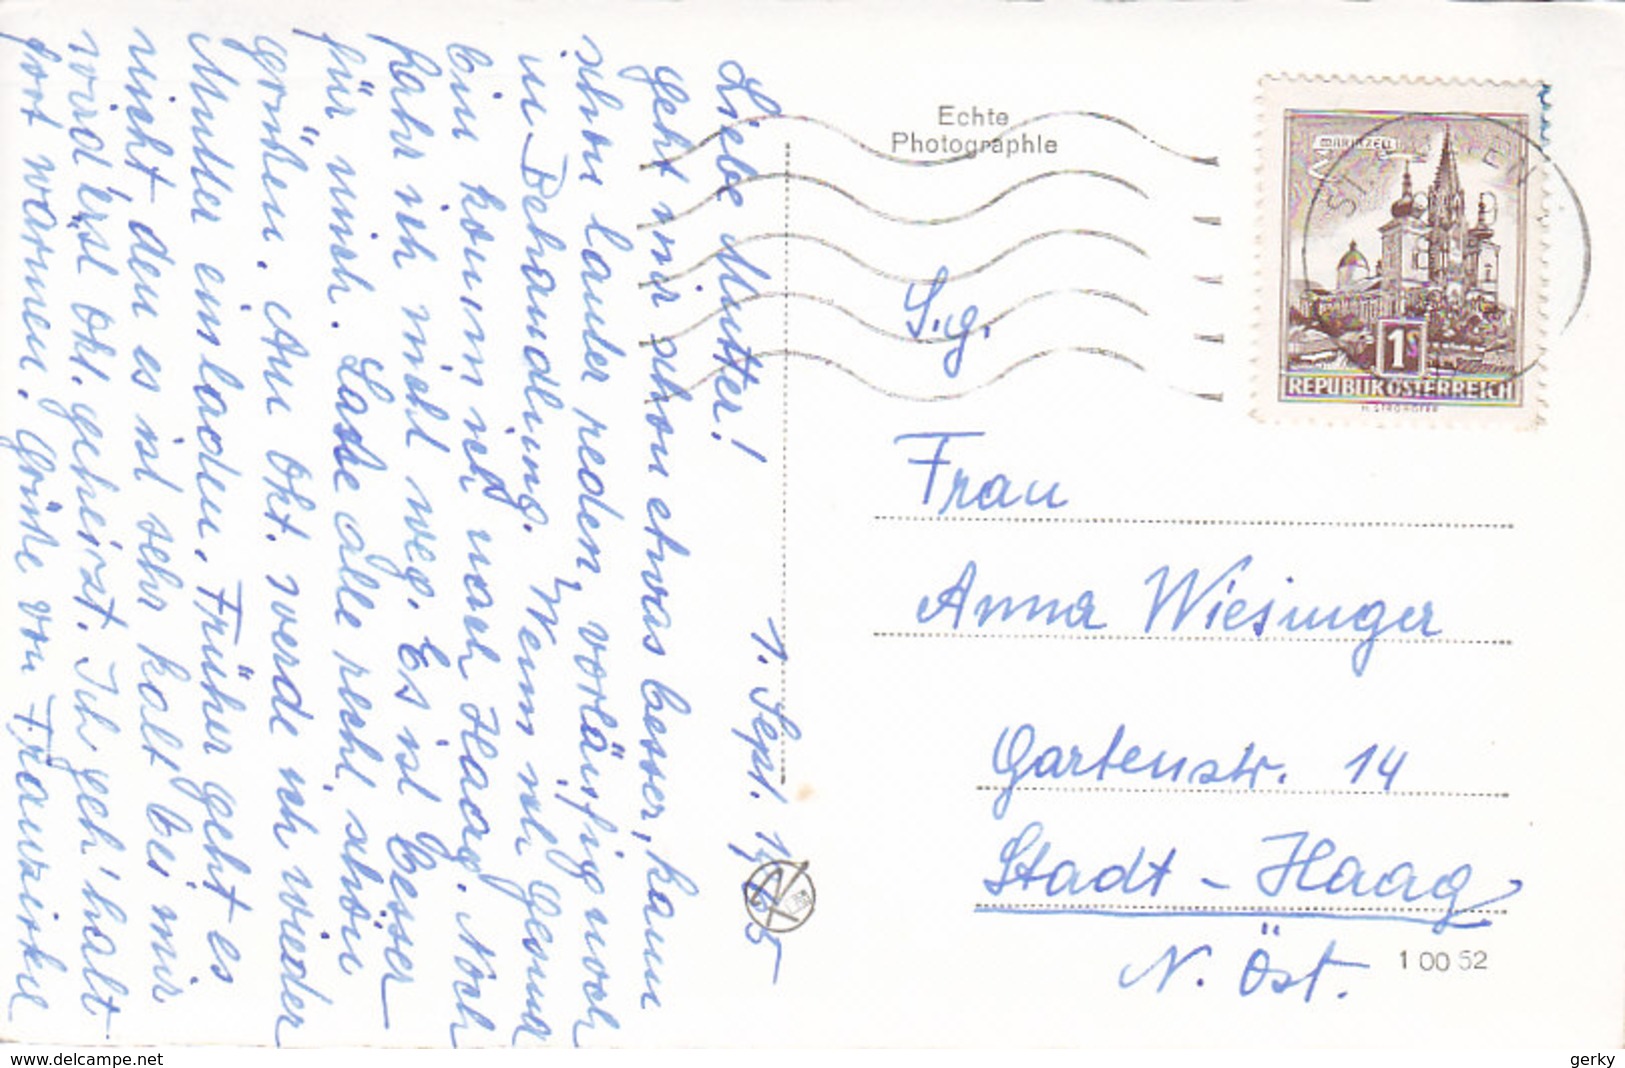 Liebe Mutter!
1. Sept. 1965
geht mir schon etwas besser, kann
schon lauter reden, vorläufig noch
in Behandlung. Wenn ich gesund
bin komm ich nach Haag. Noch
fahr ich nicht weg. Es ist besser
für mich. Lasse alle recht schön
grüßen. Am Okt. werde ich wieder
Mutter einladen. Früher geht es
nicht, den es ist sehr kalt bei mir
wird erst Okt. geheizt. Ich geh' halt
fort wärmen. Grüße von Franziska
Echte
Photographie
S.g.
Frau
Anna Wiesinger
Gartenstr. 14
Stadt - Haag
N. Öst.
1 00 52
MARIAZELL
1S
REPUBLIK ÖSTERREICH
H. STROHOFER
ST.
www.delcampe.net
gerky